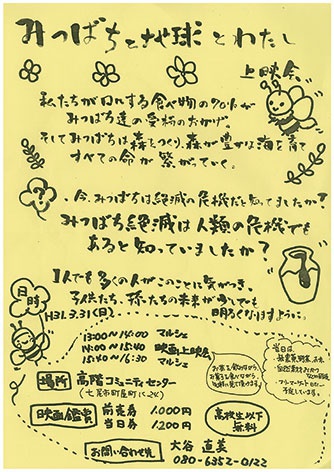 みつばちと地球とわたし
上映会
私たちが口にする食べ物の70%が
みつばち達の受粉のおかげ。
そしてみつばちは森をつくり、森が豊かな海を育て
すべての命が繋がっていく。
今、みつばちは絶滅の危機だと知ってましたか?
みつばち絶滅は人類の危機でも
あると知っていましたか?
1人でも多くの人がこのことに気がつき、
子供たち、孫たちの未来が少しでも
明るくなりますように。
日時
H31.3.31(日)
13:00〜14:00 マルシェ
14:00〜15:40 映画上映会
15:40〜16:30 マルシェ
お茶を飲みながら
お菓子を食べながら
当日は、
・無農薬野菜、お米
・フリーマーケットなど
予定しています。
場所 高階コミュニティセンター
(七尾市町屋町ハ25)
映画鑑賞
前売券 1,000円
当日券 1,200円
高校生以下
無料
お問い合わせ先
大谷 直美
080-6352-0122